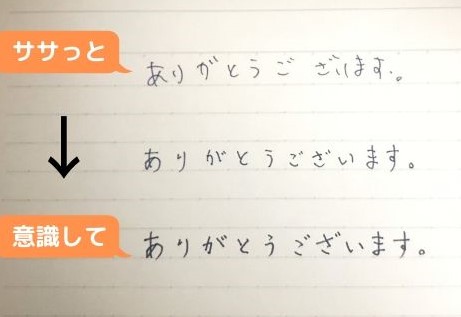 ササっと
ありがとうございます。
↓
ありがとうございます。
意識して
ありがとうございます。